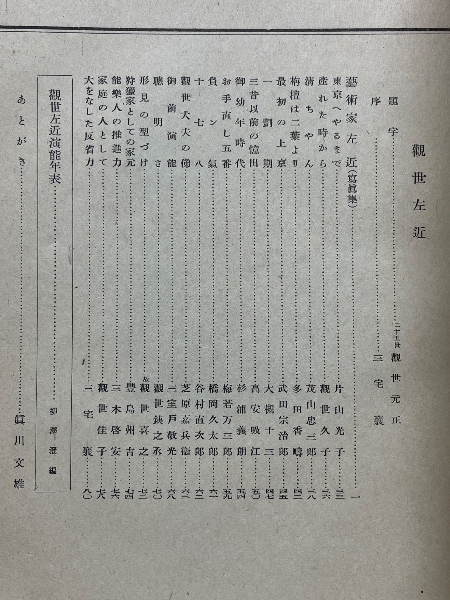 觀世左近
題字……二十五世 觀世元正
序……三宅襄
藝術家左近(寫眞集)……一
東京へやるまで……片山光子……三三
産れた時から……觀世久子……三六
清ちやん……茂山忠三郎……三八
栴檀は二葉より……多田香疇……四三
最初の上京……武田宗治郎……四五
一割期……大槻十三……四七
三昔以前の憶出……高安吸江……五〇
御幼年時代……杉浦義朗……五四
お手直し五番……梅若万三郎……五九
負けン氣……橋岡久太郎……六一
十七八……谷村直次郎……六二
觀世大夫の俤……芝原嘉兵衞……六二
御前演能……三室戸敬光……六八
聰明さ……觀世銕之丞……七〇
形見の型づけ……故 觀世喜之……七三
狩獵家としての家元……豊島州吉……七四
能樂人の推進力……三木啓安……七六
家庭の人として……觀世佳子……七八
大をなした反省力……三宅襄……八〇
觀世左近演能年表……柳澤澄編
あとがき……眞川文雄